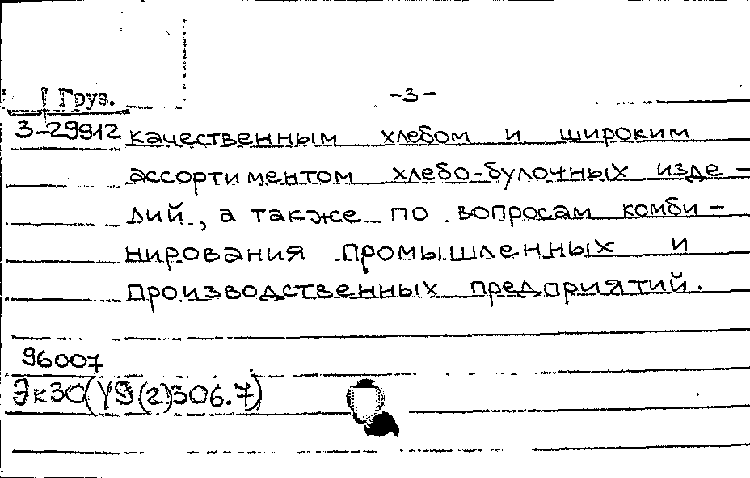 Груз. -3-
3-29912 качественным хлебом и широким
ассортиментом хлебо-булочных изде-
лий, а также по вопросам комби-
нирования промышленных и
производственных предприятий.
96007
Эк30(У9(2)306.7)